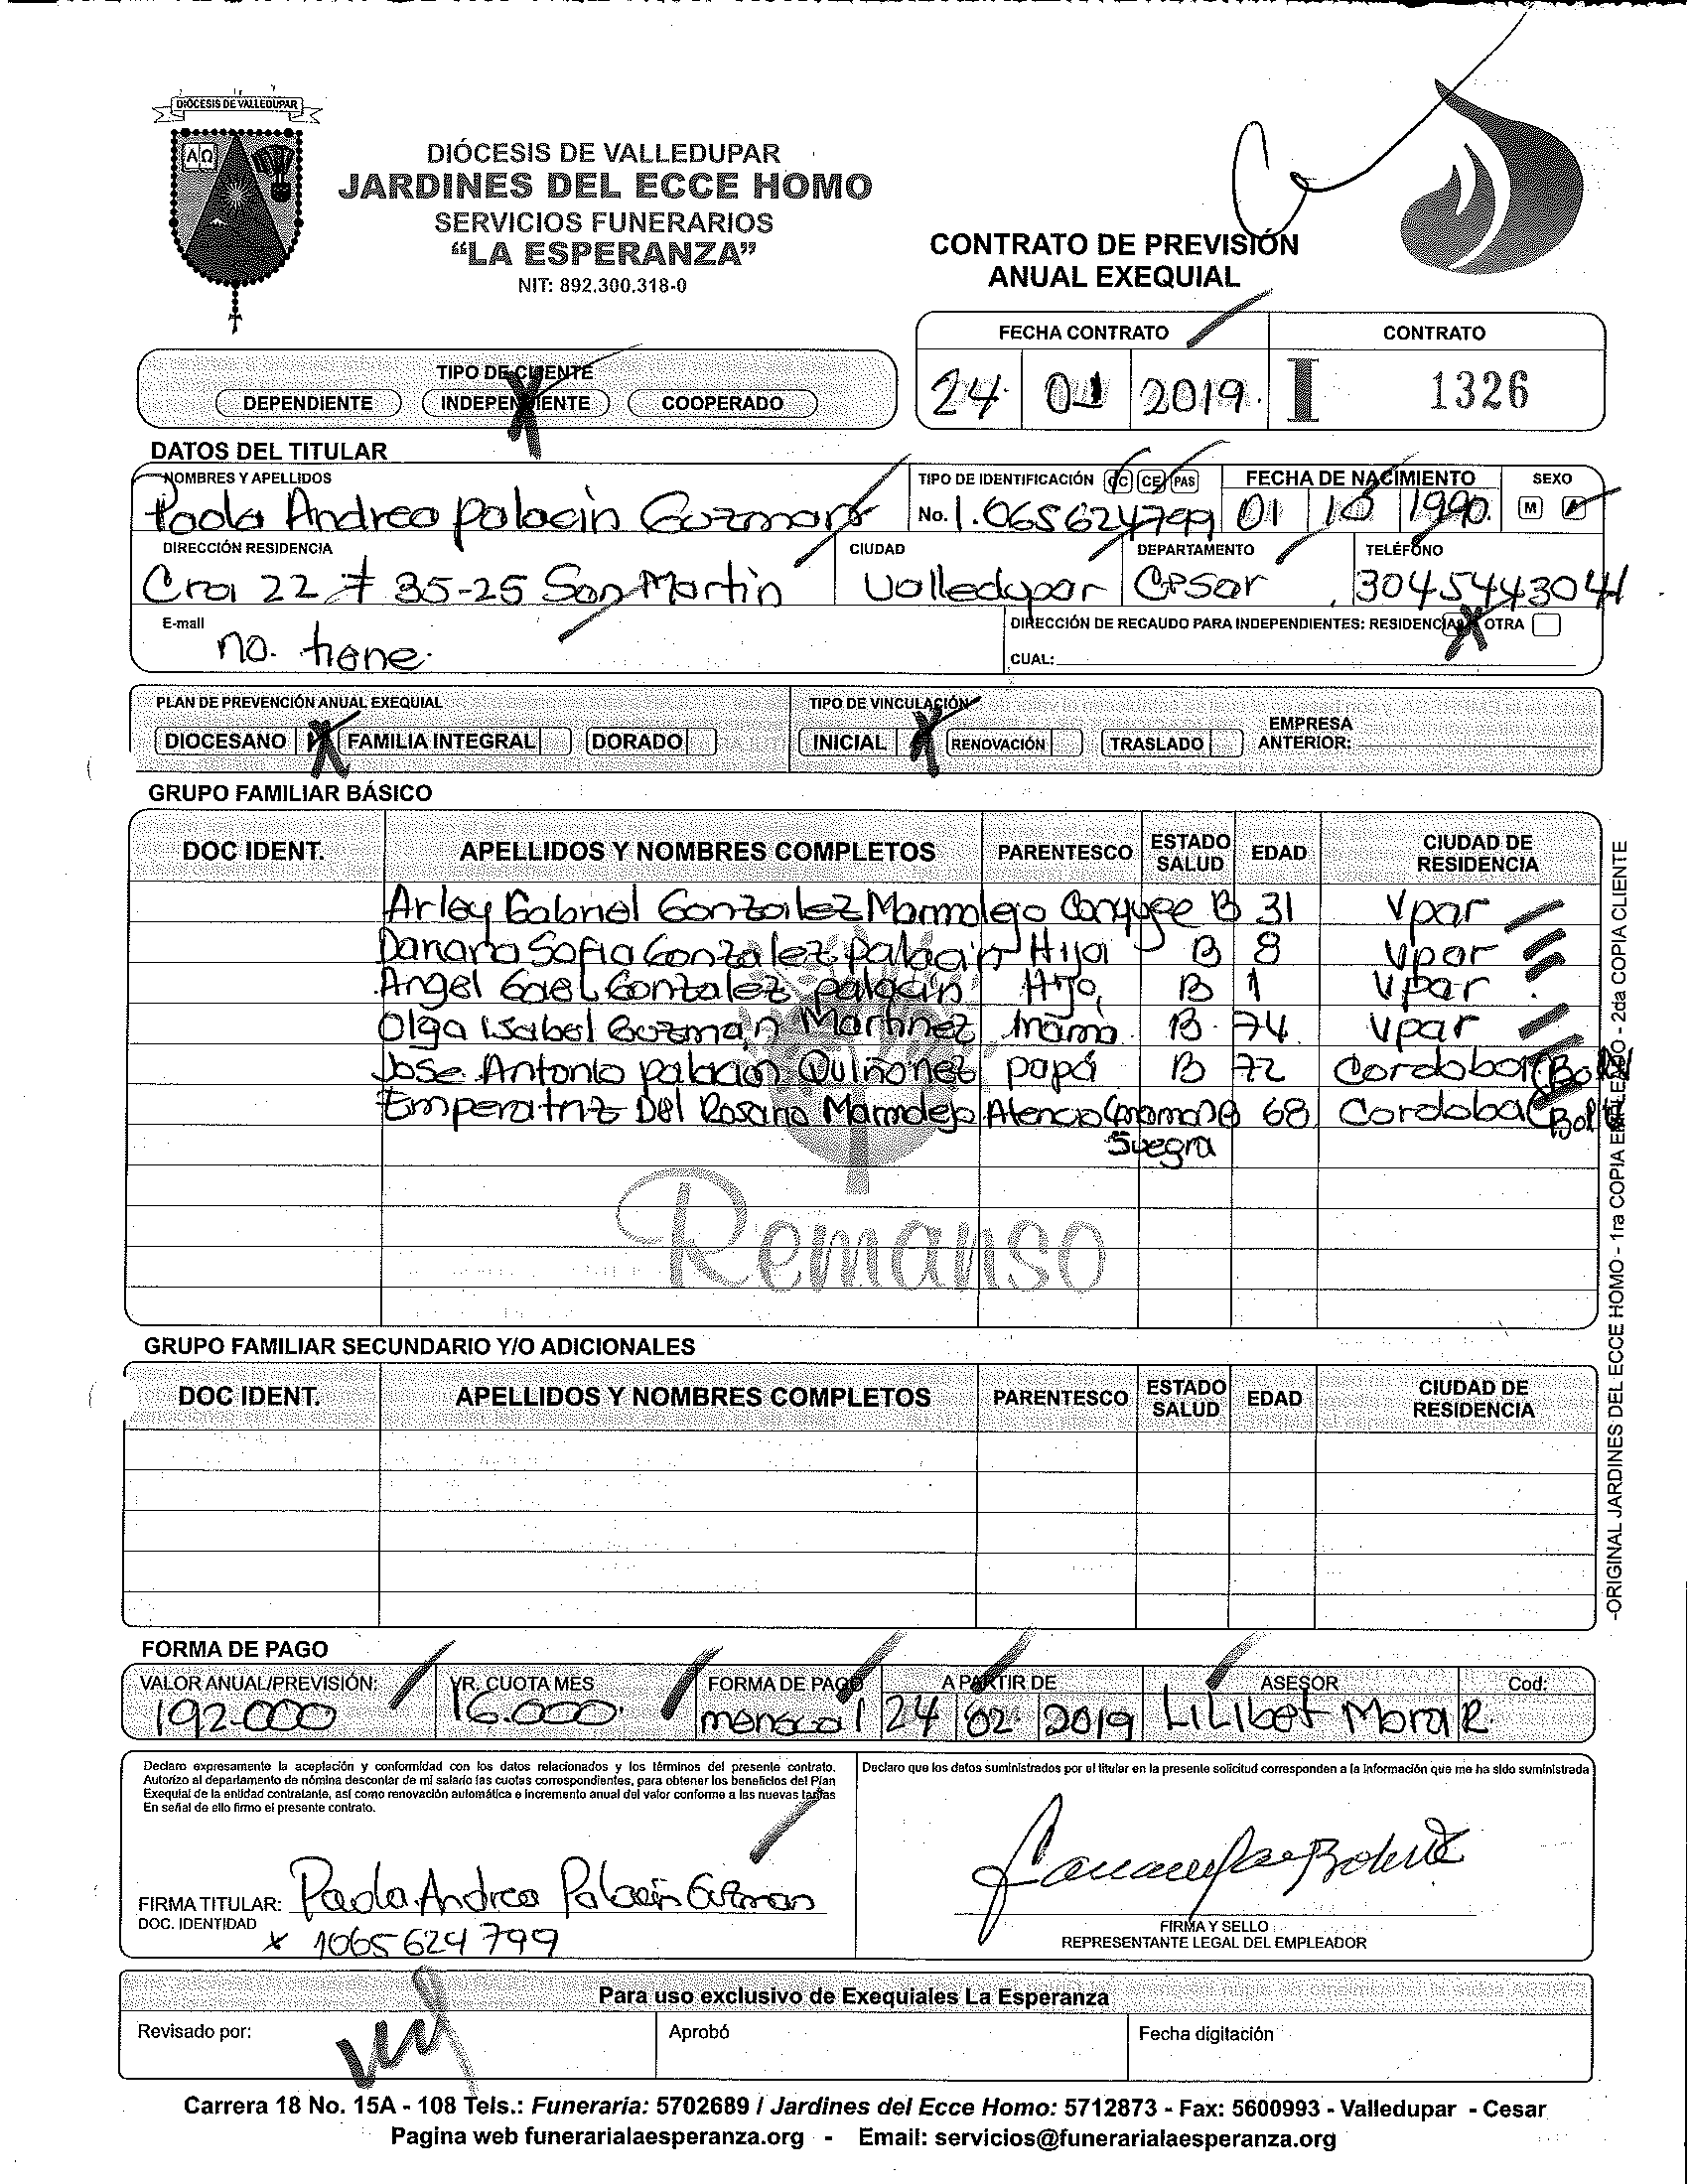 DIÓCESIS DE VALLEDUPAR
AΩ
DIÓCESIS DE VALLEDUPAR
JARDINES DEL ECCE HOMO
SERVICIOS FUNERARIOS
“LA ESPERANZA”
NIT: 892.300.318-0
CONTRATO DE PREVISIÓN
ANUAL EXEQUIAL
FECHA CONTRATO CONTRATO
24 01 2019. I 1326
TIPO DE CLIENTE
DEPENDIENTE INDEPENDIENTE X COOPERADO
DATOS DEL TITULAR
NOMBRES Y APELLIDOS TIPO DE IDENTIFICACIÓN CC CE PAS FECHA DE NACIMIENTO SEXO
Paola Andrea palacin Guzman No. 1.065624799 01 10 1990. M
DIRECCIÓN RESIDENCIA CIUDAD DEPARTAMENTO TELÉFONO
Cra 22 # 35-25 San Martin Valledupar Cesar 3045443041
E-mail no. tiene. DIRECCIÓN DE RECAUDO PARA INDEPENDIENTES: RESIDENCIA X OTRA
CUAL:
PLAN DE PREVENCIÓN ANUAL EXEQUIAL TIPO DE VINCULACIÓN
DIOCESANO X FAMILIA INTEGRAL DORADO INICIAL X RENOVACIÓN TRASLADO EMPRESA ANTERIOR:
GRUPO FAMILIAR BÁSICO
DOC IDENT. APELLIDOS Y NOMBRES COMPLETOS PARENTESCO ESTADO SALUD EDAD CIUDAD DE RESIDENCIA
Arley Gabriel Gonzalez Marmolejo Conyuge B 31 Vpar
Danara Sofia Gonzalez palacin Hija B 8 Vpar
Angel Gael Gonzalez palacin Hijo, B 1 Vpar
Olga Isabel Guzman Martinez mamá B. 74 Vpar
Jose Antonio palacin Quiñonez papá B 72 Cordoba
Emperatriz Del Rosario Marmolejo Atencio (mamá B 68 Cordoba
Suegra
Remanso
GRUPO FAMILIAR SECUNDARIO Y/O ADICIONALES
DOC IDENT. APELLIDOS Y NOMBRES COMPLETOS PARENTESCO ESTADO SALUD EDAD CIUDAD DE RESIDENCIA
-ORIGINAL JARDINES DEL ECCE HOMO - 1ra COPIA EMPLEADO - 2da COPIA CLIENTE
FORMA DE PAGO
VALOR ANUAL/PREVISIÓN: VR. CUOTA MES FORMA DE PAGO A PARTIR DE ASESOR Cod:
192.000 16.000. mensual 24 02 2019 LiLibet Mora R.
Declaro expresamente la aceptación y conformidad con los datos relacionados y los términos del presente contrato.
Autorizo al departamento de nómina descontar de mi salario las cuotas correspondientes, para obtener los beneficios del Plan
Exequial de la entidad contratante, así como renovación automática e incremento anual del valor conforme a las nuevas tarifas
En señal de ello firmo el presente contrato.
Declaro que los datos suministrados por el titular en la presente solicitud corresponden a la información que me ha sido suministrada
FIRMA TITULAR: Paola Andrea Palacin Guzman
DOC. IDENTIDAD x 1065 624 799
FIRMA Y SELLO
REPRESENTANTE LEGAL DEL EMPLEADOR
Para uso exclusivo de Exequiales La Esperanza
Revisado por: Aprobó Fecha digitación
Carrera 18 No. 15A - 108 Tels.: Funeraria: 5702689 / Jardines del Ecce Homo: 5712873 - Fax: 5600993 - Valledupar - Cesar
Pagina web funerarialaesperanza.org - Email: servicios@funerarialaesperanza.org